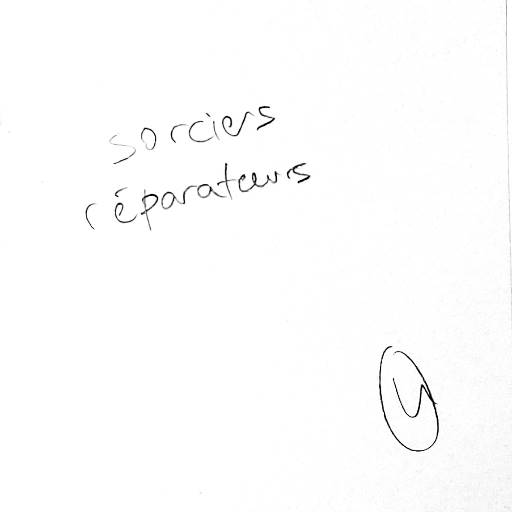 sorciers
réparateurs